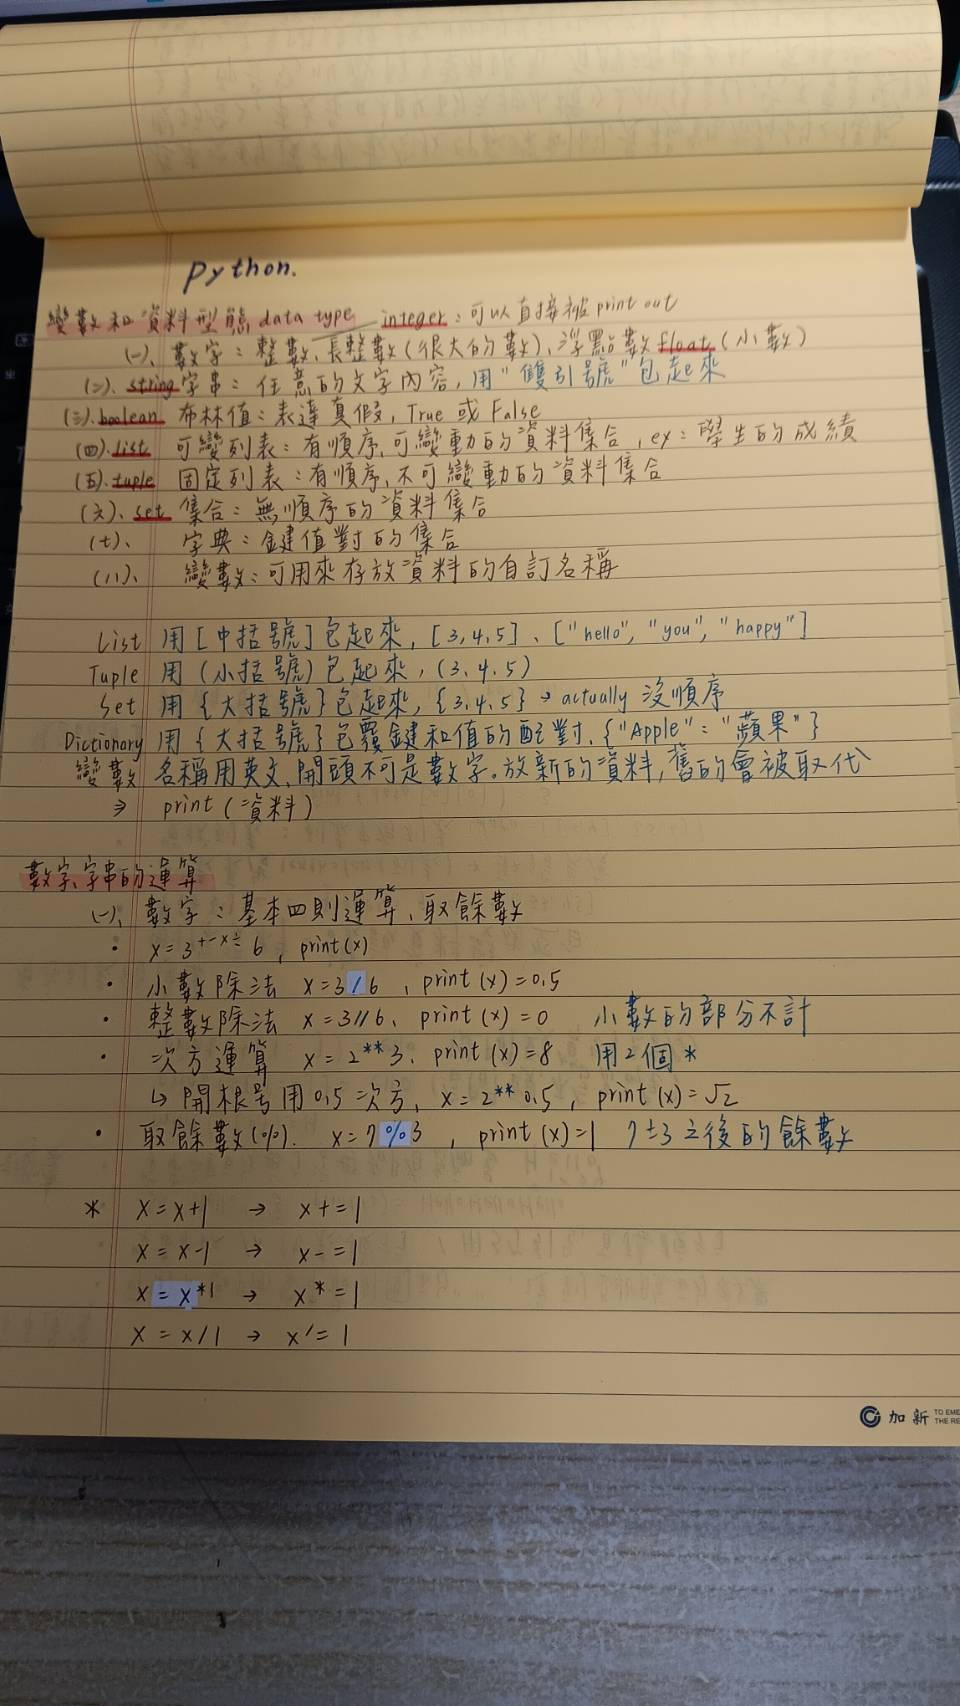 Python.
變數和資料型態 data type integer：可以直接被 print out
(一)、數字：整數、長整數(很大的數)、浮點數 float (小數)
(二)、string 字串：任意的文字內容，用"雙引號"包起來
(三)、boolean 布林值：表達真假，True 或 False
(四)、list 可變列表：有順序、可變動的資料集合，ex：學生的成績
(五)、tuple 固定列表：有順序、不可變動的資料集合
(六)、set 集合：無順序的資料集合
(七)、 字典：鍵值對的集合
(八)、 變數：可用來存放資料的自訂名稱
List 用[中括號]包起來，[3,4,5]、["hello","you","happy"]
Tuple 用(小括號)包起來，(3.4.5)
Set 用{大括號}包起來，{3.4.5} → actually 沒順序
Dictionary 用{大括號}包覆鍵和值的配對、{"Apple"："蘋果"}
變數 名稱用英文、開頭不可是數字。放新的資料，舊的會被取代
⇒ print(資料)
數字、字串的運算
(一)、數字：基本四則運算、取餘數
• x=3+-×÷6, print(x)
• 小數除法 x=3/6 , print(x)=0.5
• 整數除法 x=3//6、print(x)=0 小數的部分不計
• 次方運算 x=2**3、print(x)=8 用2個*
↳ 開根号用0.5次方、x=2**0.5, print(x)=√2
• 取餘數(%). x=7%3 , print(x)=1 7÷3之後的餘數
* x=x+1 → x+=1
x=x-1 → x-=1
x=x*1 → x*=1
x=x/1 → x/=1
加新